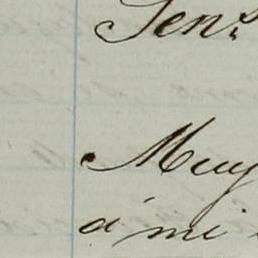 Senr
Muy
á mi